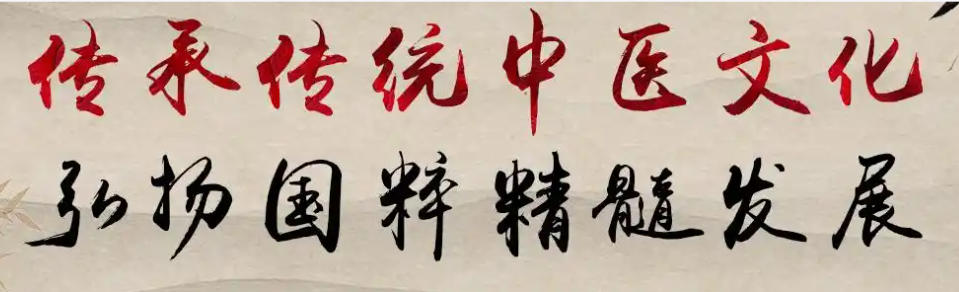 传承传统中医文化
弘扬国粹精髓发展